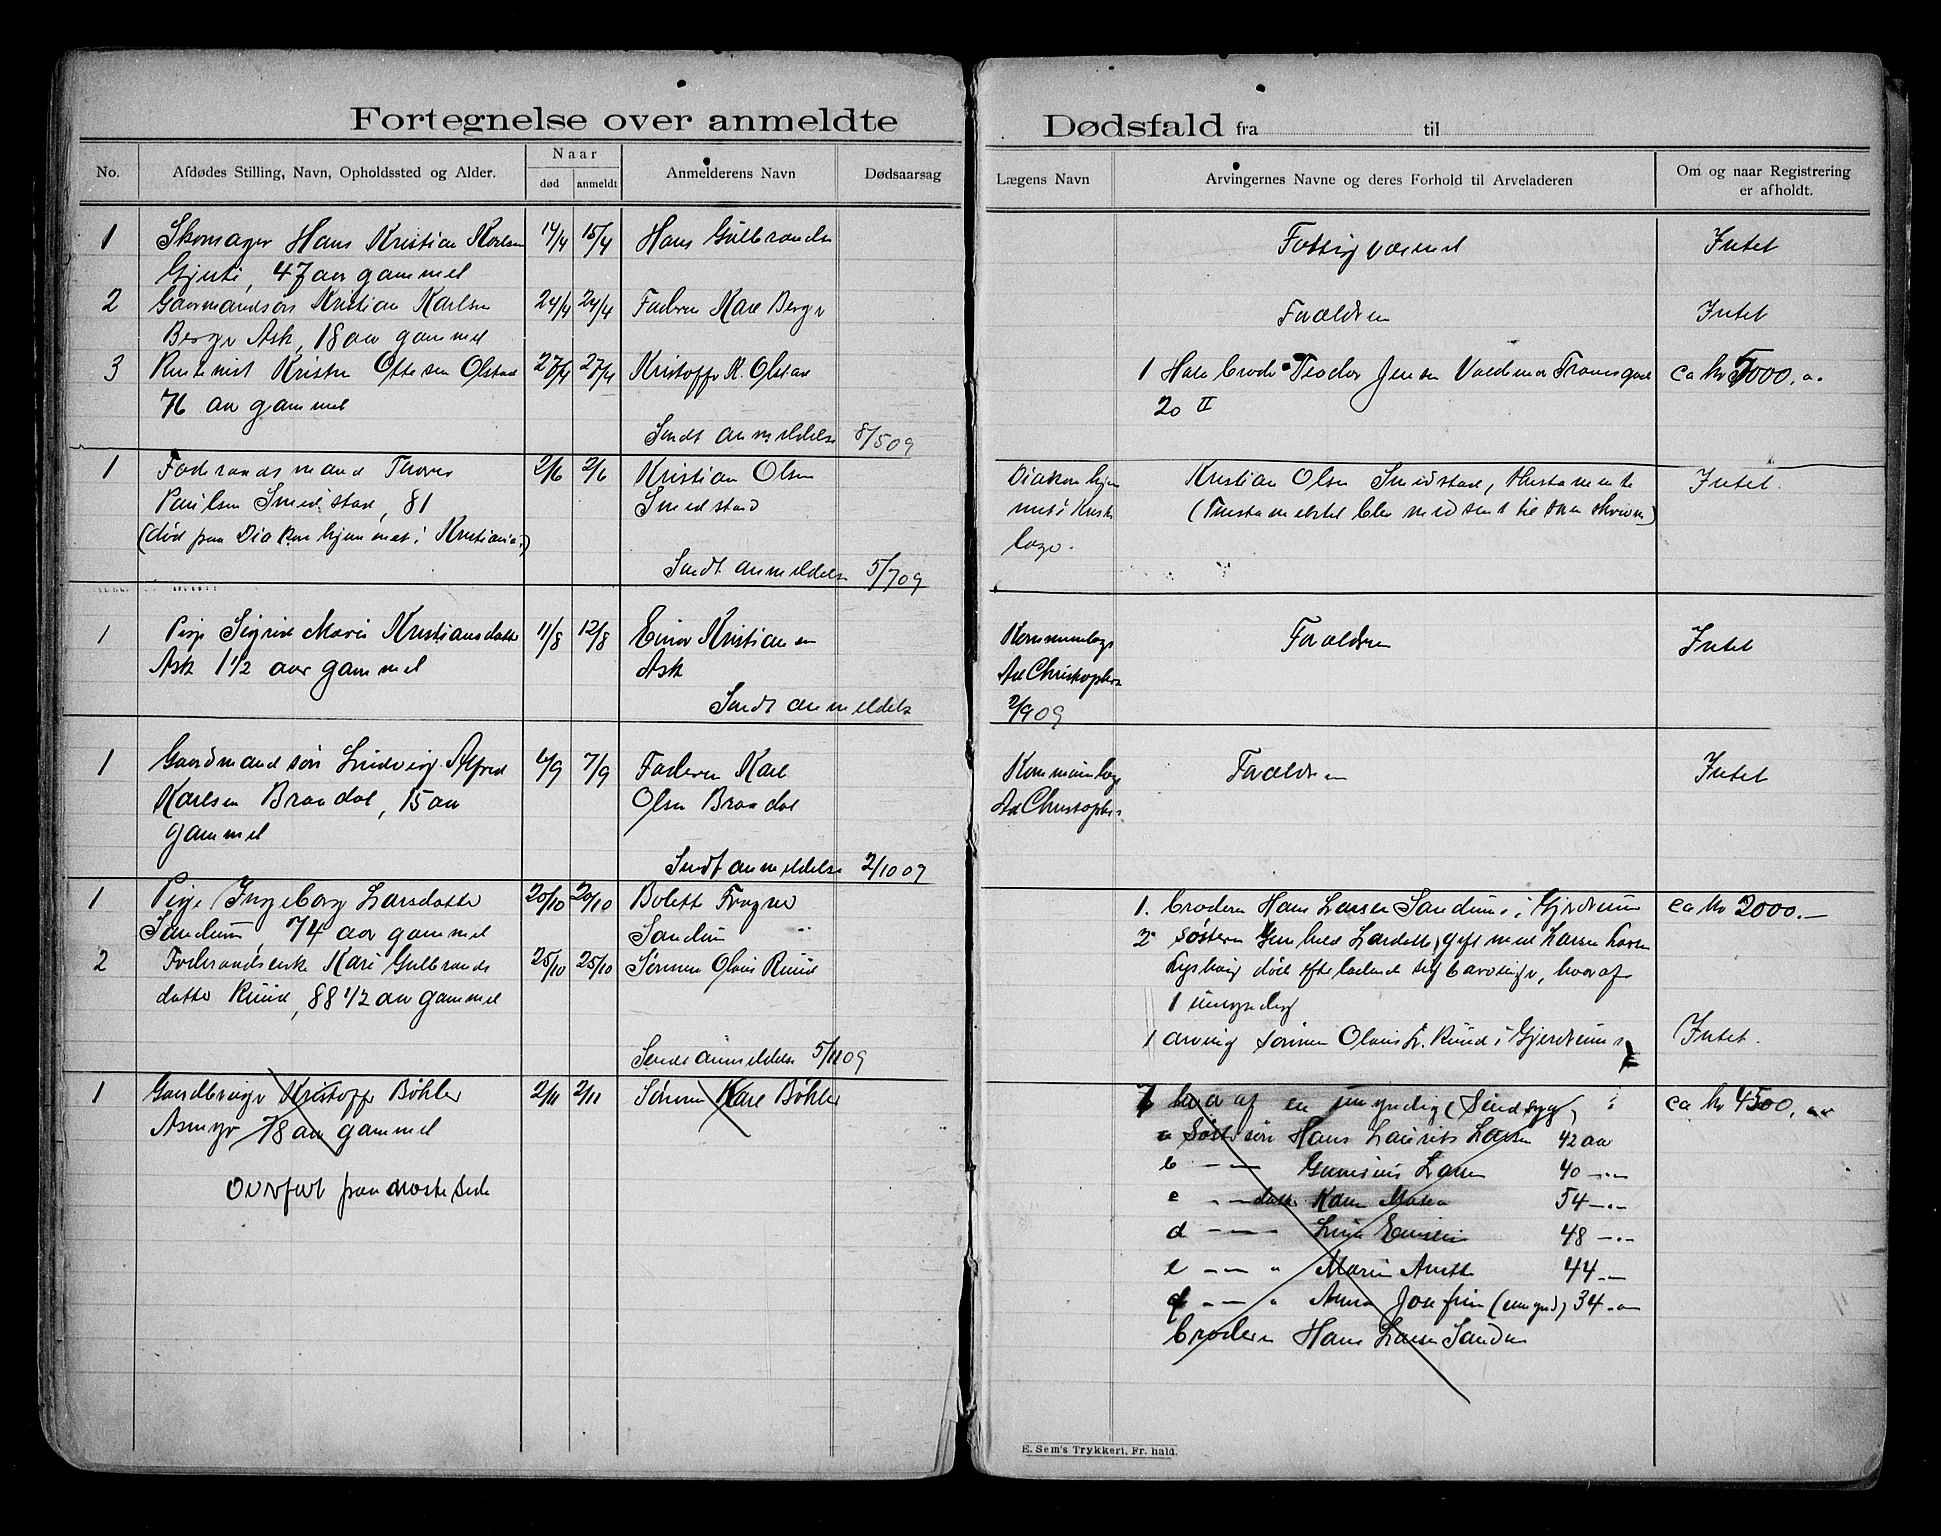 Fortegnelse over anmeldte
No. Afdødes Stilling, Navn, Opholdssted og Alder. Naar Anmelderens Navn Dødsaarsag
død anmeldt
1 Skomager Hans Kristian Karlsen 14/4 15/4 Hans Gulbrands
47 aar gammel
2 Gaarmandsøn Kristian Karlsen 24/4 24/4 Faderen Karl Berge
Berge Ask, 18 aar gammel
3 Kristen Ottesen Olstad 27/4 27/4 Kristoffer K. Olstad
76 aar gammel
Sendt anmeldelse 8/5 09
1 Føderaadsmand Thores 2/6 2/6 Kristian Olsen
Paulsen Smedstad, 81 Smedstad
(død paa Diakonhjemmet i Kristiania)
Sendt anmeldelse 5/7 09
1 Pige Sigrid Marie Kristiansdatter 11/8 12/8 Einar Kristiansen
Ask 1 1/2 aar gammel Ask
Sendt anmeldelse
1 Gaardmandsøn Ludvig Alfred 4/9 7/9 Faderen Karl
Karlsen Braadal, 15 aar Olsen Braadal
gammel
Sendt anmeldelse 2/10 09
1 Pige Ingeborg Larsdatter 20/10 20/10 Bolette Frogner
Sandum, 74 aar gammel Sandum
2 Føderaadsenke Kari Gulbrands 25/10 25/10 Sønnen Olaus Ruud
datter Ruud, 88 1/2 aar gammel
Sendt anmeldelse 5/11 09
1 Gaardbruger Kristoffer Bøhler 2/11 2/11 Sønnen Karl Bøhler
Asmyr 78 aar gammel
Overført paa næste side
Dødsfald fra til
Lægens Navn Arvingernes Navne og deres Forhold til Arveladeren Om og naar Registrering
er afholdt.
Fattigvæsenet Intet
Forældrene Intet
1 Halvbroder Teodor Jensen Valdemar Tranesgade ca kr 5000,00
20 II
Diakonhjem Kristian Olsen Smedstad, Intet.
mets
læge.
Kommunelæge Forældrene Intet
Ad Christophersen
2/9 09
Kommunelæge Forældrene Intet
Ad Christophersen
1. broderen Hans Larsen Sandum i Gjerdrum ca kr 2000.—
2 søsteren Gunhild Larsdatter, gift med Larsen
død efterladende sig børn, hvoraf
1 umyndig
1 arving sønnen Olaus L. Ruud i Gjerdrum Intet.
7 hvoraf en umyndig (Sindssyg) ca kr 4500,
a Søstersøn Hans Laurits Larsen 42 aar
b — — Larsen 40 —"—
c —"— datter Karen 54 —"—
d — — — 48 —"—
e — — " Maren Anette 44 —
f — — " Anna Josefine (umynd) 34 —
broderen Hans Larsen Sandum
E. Sem's Trykkeri, Fr. hald.